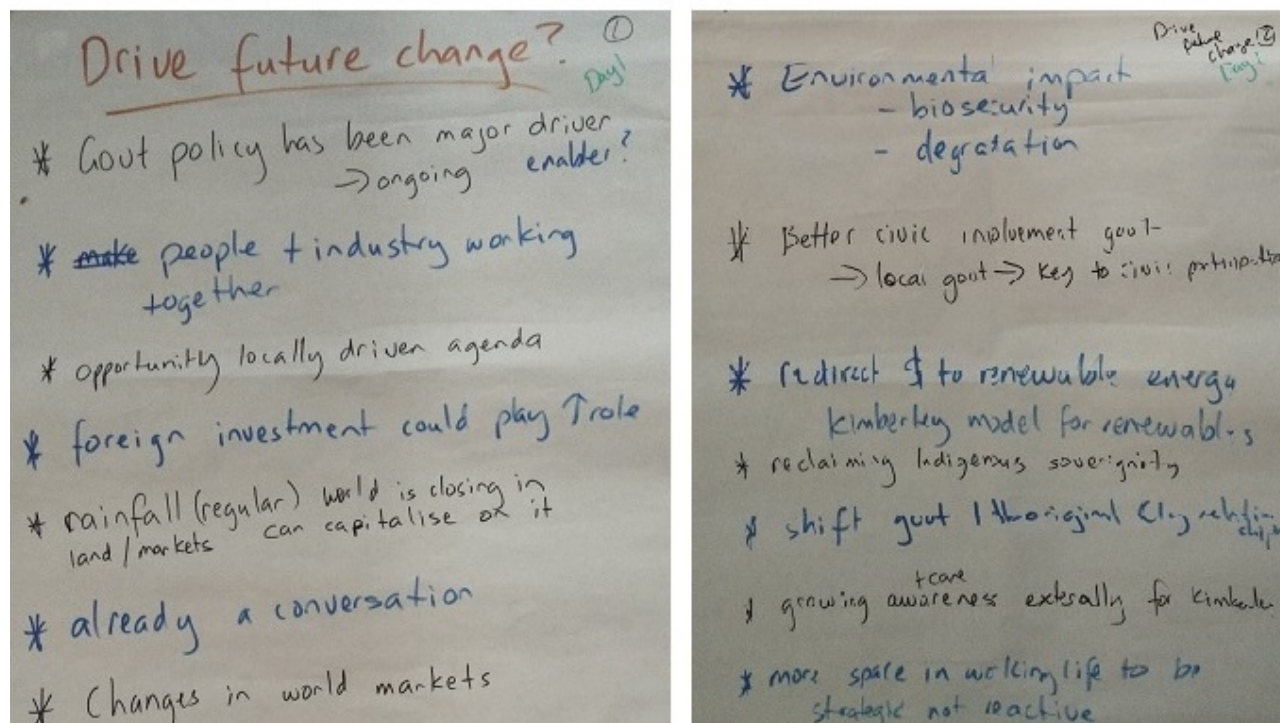 Drive future change? ①
Day 1
* Govt policy has been major driver
→ ongoing enabler?
* make people + industry working
together
* opportunity locally driven agenda
* foreign investment could play ↑ role
* rainfall (regular) world is closing in
land/markets can capitalise on it
* already a conversation
* Changes in world markets
Drive
future
change ②
Day 1
* Environmental impact
- biosecurity
- degradation
* Better civic involvement govt
→ local govt → key to civic participation
* redirect $ to renewable energy
Kimberley model for renewables
* reclaiming Indigenous soverignity
* shift govt / Aboriginal
* growing awareness + care externally for Kimberley
* more space in working life to be
strategic not reactive